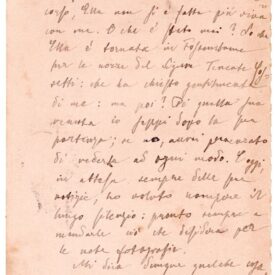 corso, Ella non si è fatta più viva
con me. O che è stato mai? So che
Ella è tornata in Fossombrone
per le nozze del Signor Tenente
setti: che ha chiesto gentilmente
di me: ma poi? Di quella sua
venuta io seppi dopo la sua
partenza; se no, avrei procurato
di vederla ad ogni modo. E oggi,
in attesa sempre delle sue
notizie, ho voluto rompere il
lungo silenzio: pronto sempre a
mandarle ciò che desidera per
le note fotografie.
Mi dica dunque qualche cosa